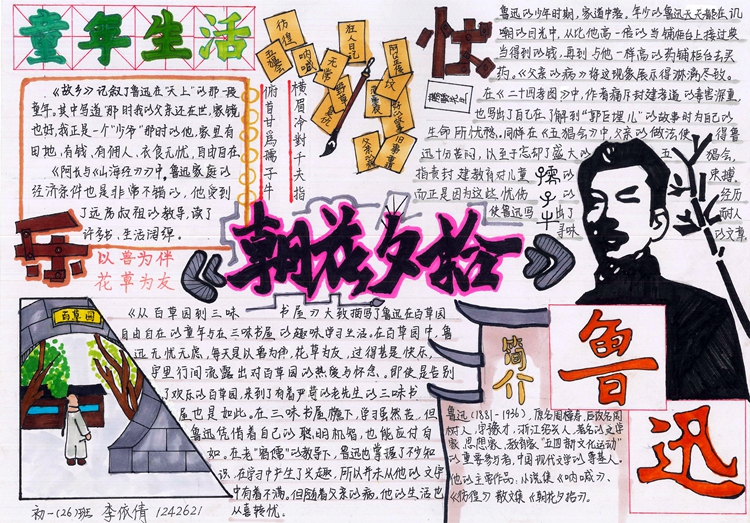 童年生活
《故乡》记叙了鲁迅在"天上"的那一段
童年。其中写道"那时我的父亲还在世，家境
也好，我正是一个"少爷"那时的他，家里有
田地，有钱、有佣人、衣食无忧，自由自在
《阿长与《山海经》》中，鲁迅家庭的
经济条件也是非常不错的，他受到
了远房叔祖的教导，读了
许多书，生活阔绰。
乐
以兽为伴
花草为友
彷徨
呐喊
狂人日记
无常
野草
坟
故事新编
俯首甘为孺子牛
横眉冷对千夫指
忧
鲁迅的少年时期，家道中落。年少的鲁迅天天都在讥
嘲的目光中，从比他高一倍的当铺柜台上接过变
当得到的钱，再到与他一样高的药铺柜台去买
药。《父亲的病》将这现象展示得淋漓尽致。
在《二十四孝图》中，作者痛斥封建孝道的毒害深重，
也写出了自己在了解到"郭巨埋儿"的故事时为自己的
生命所忧愁。同样在《五猖会》中父亲的做法使得鲁
迅十分苦闷，以至于忘却了盛大的五猖会，
指责封建教育对儿童的束缚。
而正是因为这些忧伤的经历
使鲁迅写出了耐人
寻味的文章
孺子牛
《朝花夕拾》
百草园
《从百草园到三味书屋》大致描写了鲁迅在百草园
自由自在的童年与在三味书屋的趣味学习生活。在百草园中，鲁
迅无忧无虑，每天是以兽为伴，花草为友，过得甚是快乐，
字里行间流露出对百草园的热爱与怀念。即使是告别
了欢乐的百草园，来到了有着严苛的老先生的三味书
屋也是如此。在三味书屋檐下，学习虽然苦，但
鲁迅凭借着自己的聪明机智，也能应付自
如。在老"宿儒"的教导下，鲁迅也掌握了不少知
识，在学习中产生了兴趣，所以并未从他的文字
中有着不满。但随着父亲的病，他的生活也
从喜转忧。
简介
鲁迅
鲁迅(1881-1936)，原名周樟寿，后改名周
树人，字豫才，浙江绍兴人，著名的文学
家、思想家、教育家，"五四新文化运动"
的重要参与者，中国现代文学的奠基人。
他的主要作品：小说集《呐喊》、
《彷徨》散文集《朝花夕拾》。
初一(26)班 李依倩 1242621